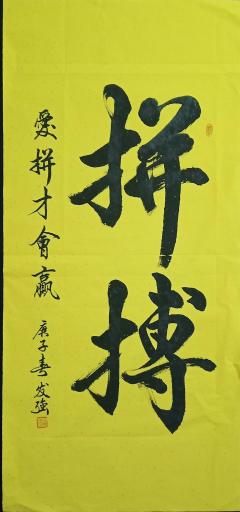 拼搏
愛拼才會贏
庚子春发强